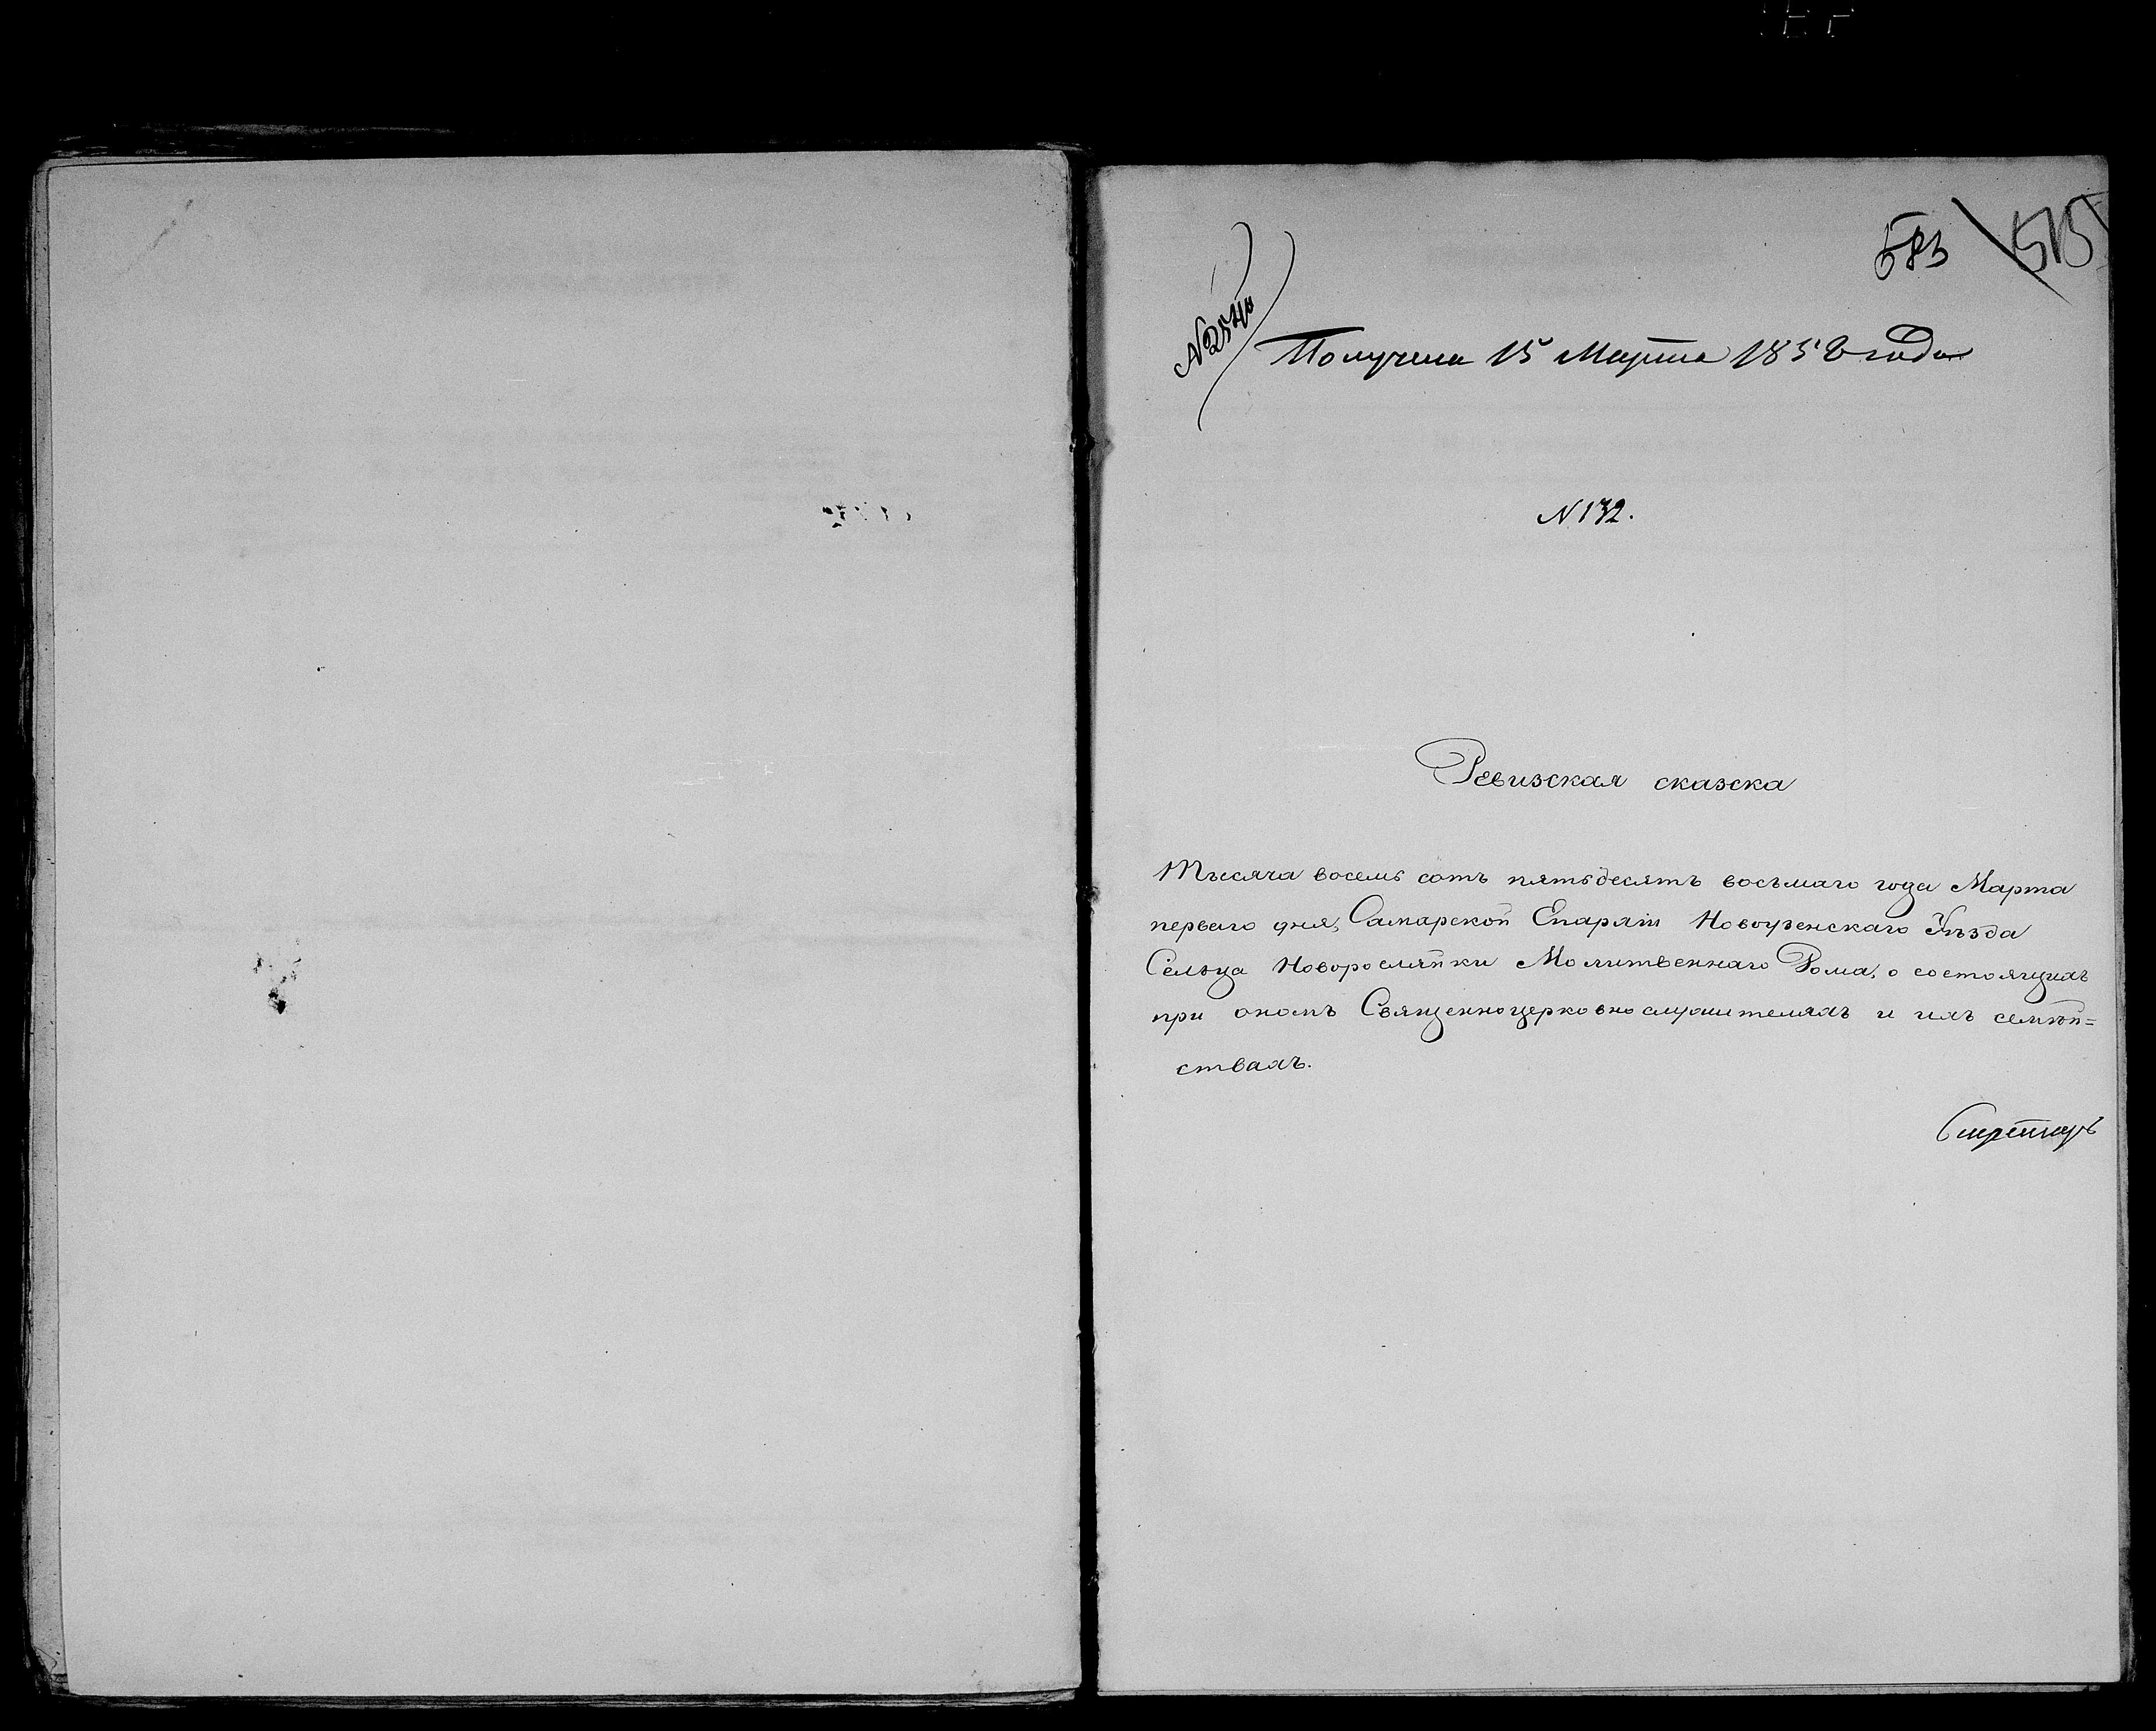 583 515
№ 2540
Получена 15 Марта 1858 года
N 132.
Ревизская сказка
Тысяча восемь сотъ пятьдесятъ восьмаго года Марта
перваго дня, Самарской Епархіи Новоузенскаго Уѣзда
Сельца Новорослянки Молитвеннаго Дома, о состоящихъ
при ономъ Священноцерковнослужителяхъ и ихъ семѣй=
ствахъ.
Секретарь